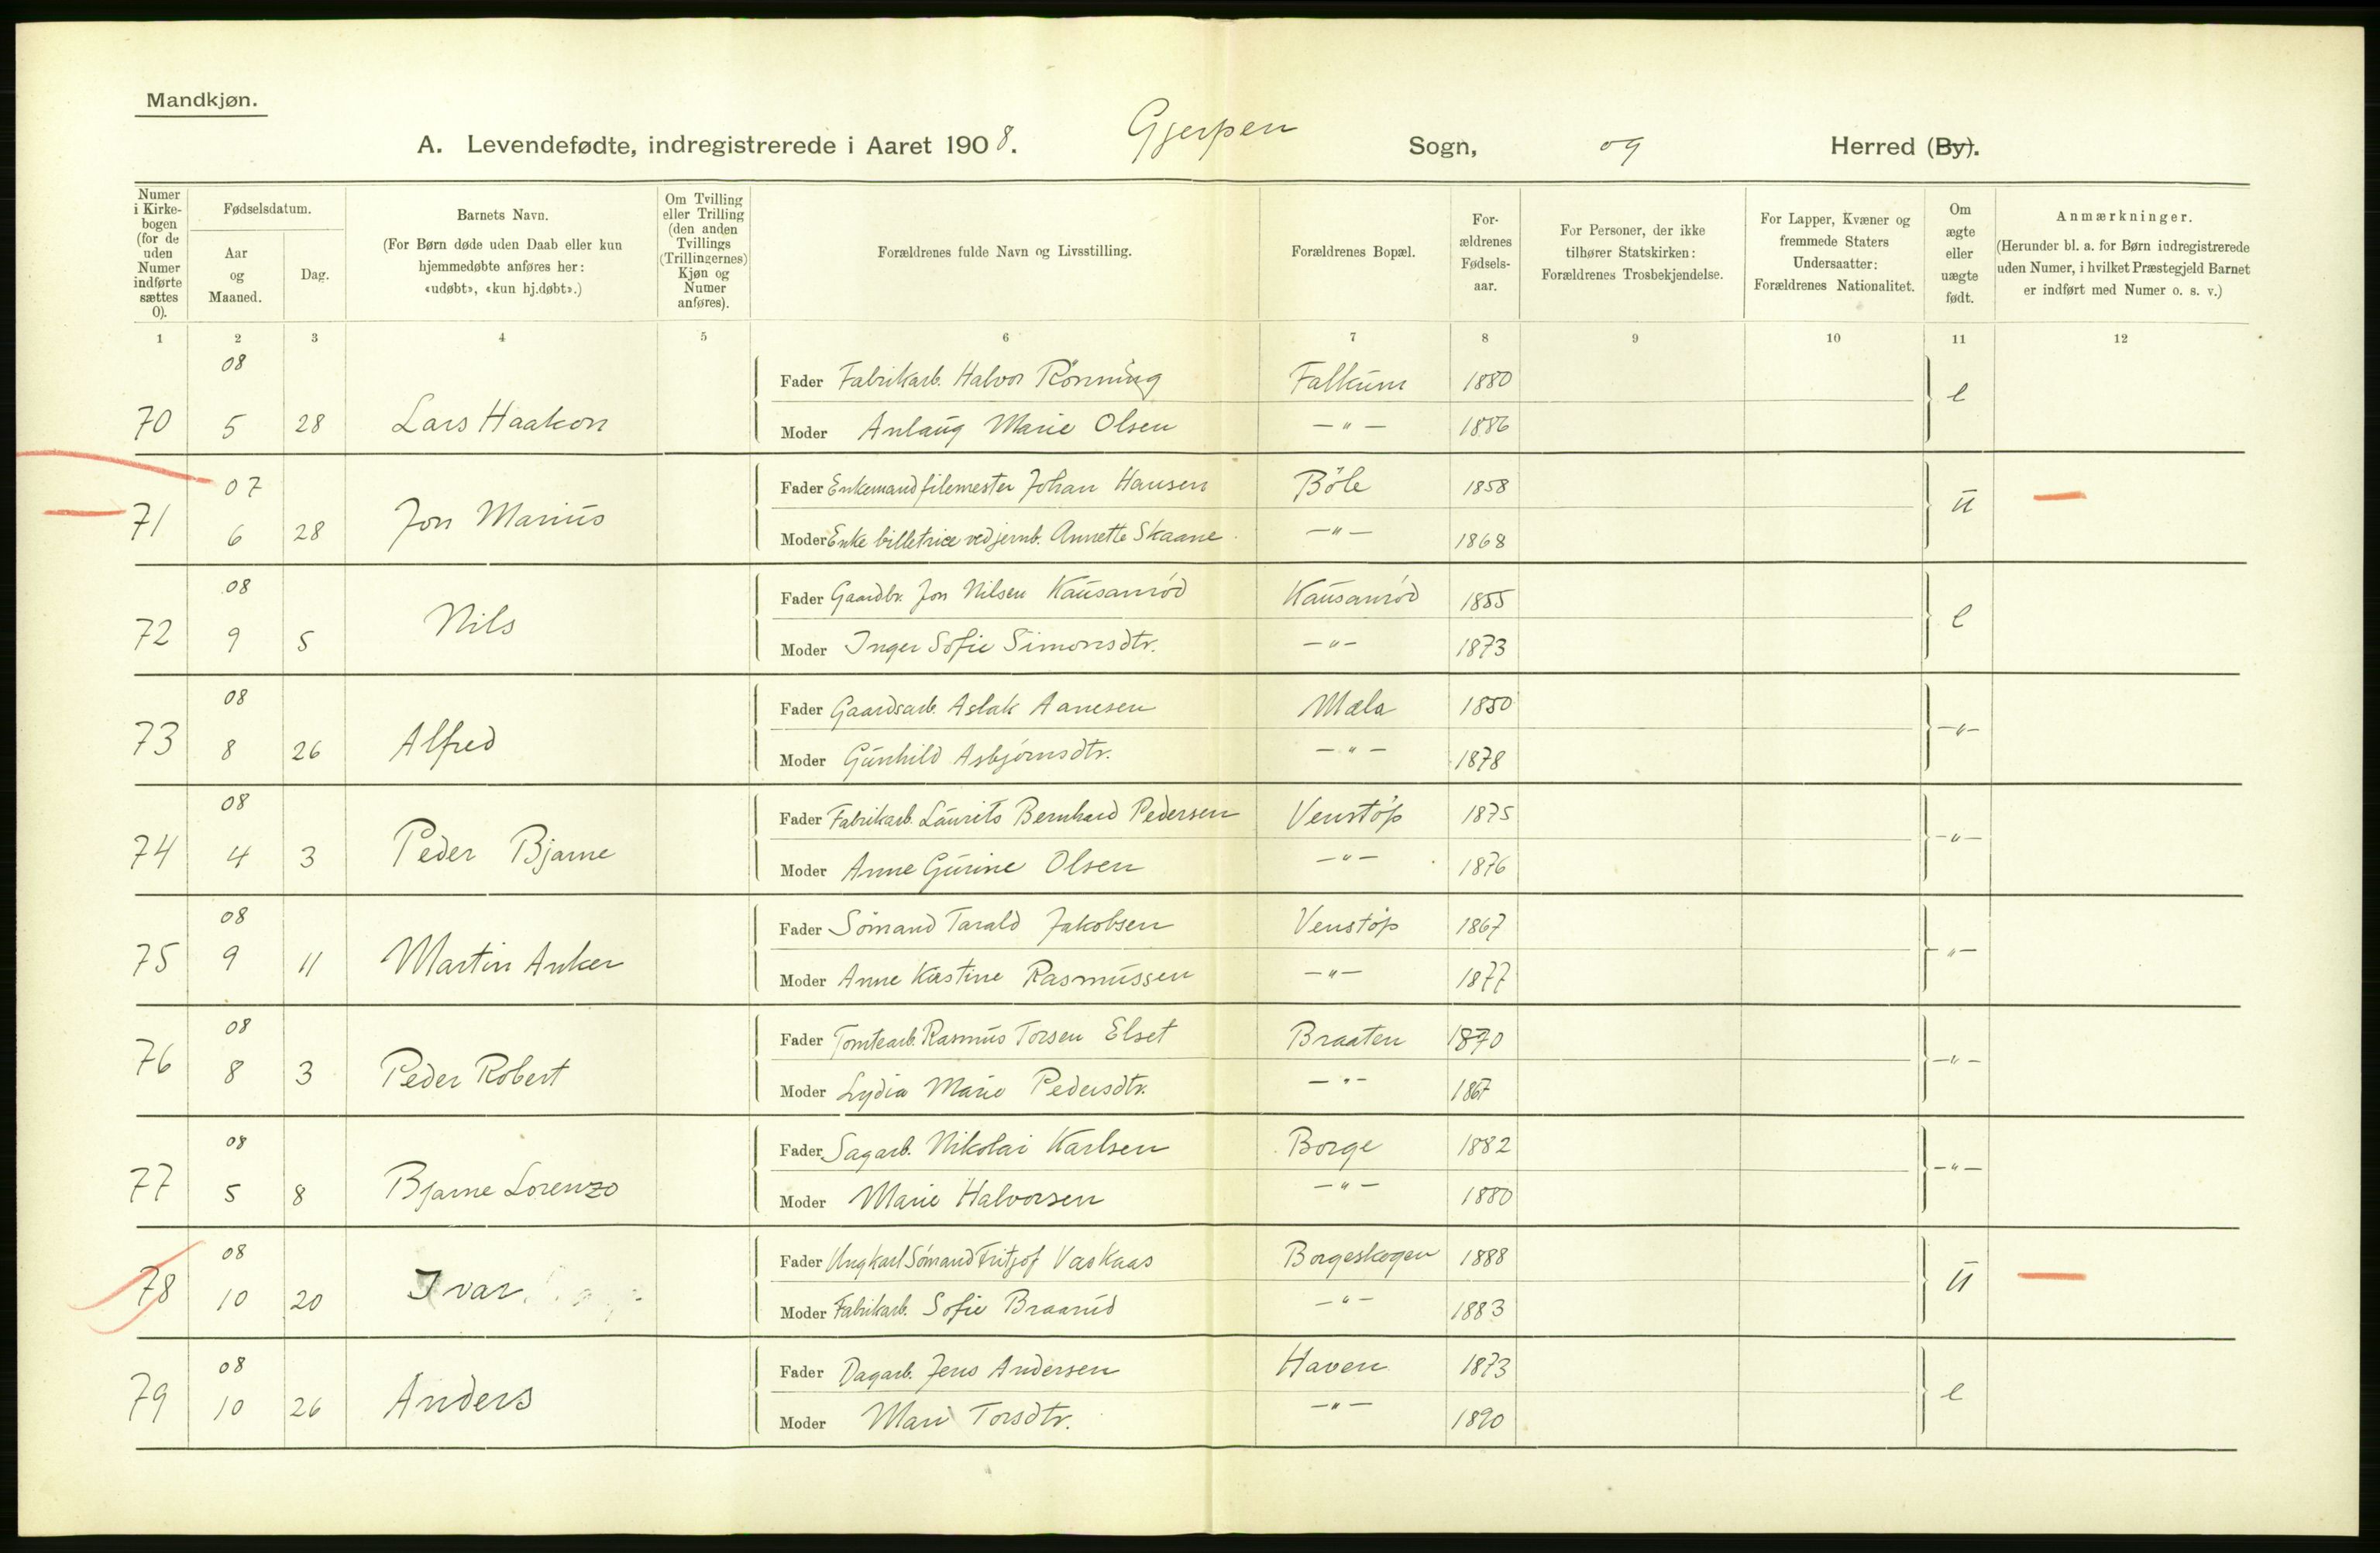 Mandkjøn.
A. Levendefødte, indregistrerede i Aaret 1908. Gjerpen Sogn, og Herred (By).
Numer i Kirkebogen (for de uden Numer indførte sættes 0).
Fødselsdatum.
Aar og Maaned.
Dag.
Barnets Navn.
(For Børn døde uden Daab eller kun hjemmedøbte anføres her: «udøbt», «kun hj.døbt».)
Om Tvilling eller Trilling (den anden Tvillings (Trillingernes) Kjøn og Numer anføres).
Forældrenes fulde Navn og Livsstilling.
Forældrenes Bopæl.
Forældrenes Fødselsaar.
For Personer, der ikke tilhører Statskirken: Forældrenes Trosbekjendelse.
For Lapper, Kvæner og fremmede Staters Undersaatter: Forældrenes Nationalitet.
Om ægte eller uægte født.
Anmærkninger.
(Herunder bl. a. for Børn indregistrerede uden Numer, i hvilket Præstegjeld Barnet er indført med Numer o. s. v.)
1 2 3 4 5 6 7 8 9 10 11 12
08 Fader Fabrikarb. Halvor Rönning Falkum 1880 e
70 5 28 Lars Haakon Moder Anlaug Marie Olsen — " — 1886
07 Fader Enkemand filemester Johan Hansen Böle 1858 u —
71 6 28 Jon Marius Moder Enke billetrice ved jernb. Annette Skaane — " — 1868
08 Fader Gaardbr. Jon Nilsen Kausanröd Kausanröd 1855 e
72 9 5 Nils Moder Inger Sofie Simonsdtr. — " — 1873
08 Fader Gaardsarb. Aslak Aanesen Mæla 1850 — " —
73 8 26 Alfred Moder Gunhild Asbjörnsdtr. — " — 1878
08 Fader Fabrikarb. Laurits Bernhard Pedersen Venstöp 1875 — " —
74 4 3 Peder Bjarne Moder Anne Gurine Olsen — " — 1876
08 Fader Sömand Tarald Jakobsen Venstöp 1867 — " —
75 9 11 Martin Anker Moder Anne Kristine Rasmussen — " — 1877
08 Fader Tomtearb. Rasmus Torsen Elset Braaten 1870 — " —
76 8 3 Peder Robert Moder Lydia Marie Pedersdtr. — " — 1867
08 Fader Sagarb. Nikolai Karlsen Borge 1882 — " —
77 5 8 Bjarne Lorenzo Moder Marie Halvorsen — " — 1880
08 Fader Ungkarl Sömand Fritjof Vaskaas Borgeskogen 1888 u —
78 10 20 Ivar Moder Fabrikarb. Sofie Braarud — " — 1883
08 Fader Dagarb. Jens Andersen Haven 1873 e
79 10 26 Anders Moder Mari Torsdtr. — " — 1890